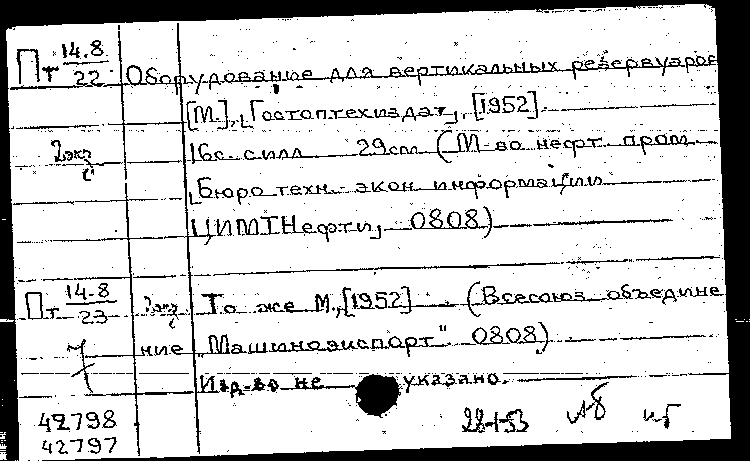 Пт 14.8/22 Оборудование для вертикальных резервуаров
[М.], Гостоптехиздат, [1952].
2 экз 16 с. с илл. 29 см (М-во нефт. пром.
Бюро техн.-экон. информации
ЦИМТНефти, 0808)
Пт 14-8/23 2 экз То же М., [1952] (Всесоюз. объедине
ние „Машиноэкспорт" 0808)
Изд-во не указано.
42798 28-1-53
42797